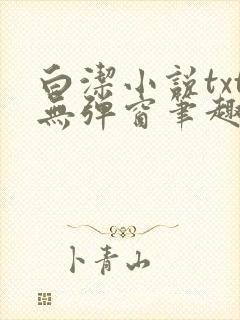 白潔小说txt
無弹窗笔趣
卜青山